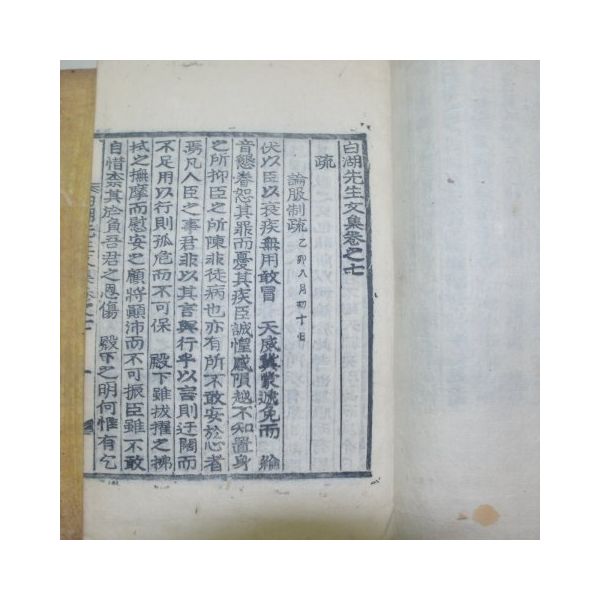 白湖先生文集卷之七
疏
論服制疏 乙卯八月初十日
伏以臣以衰疾無用敢冒 天威冀蒙遞免而 綸
音懇眷恕其罪而憂其疾臣誠惶感隕越不知置身
之所抑臣之所陳非徒病也亦有所不敢安於心者
焉凡人臣之事君非以其言與行乎以言則迂闊而
不足用以行則孤危而不可保 殿下雖拔擢之拂
拭之撫摩而慰安之顧將顚沛而不可振臣雖不敢
自惜柰其於負吾君之恩傷 殿下之明何惟有乞